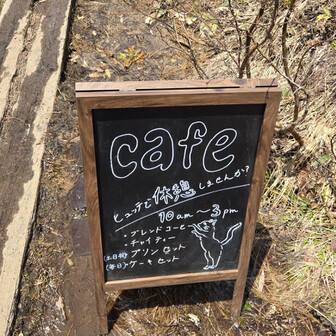 cafe
ヒュッテで休憩しませんか?
10am〜3pm
・ブレンドコーヒー
・チャイティー
(土日祝)プリンセット
(毎日)ケーキセット